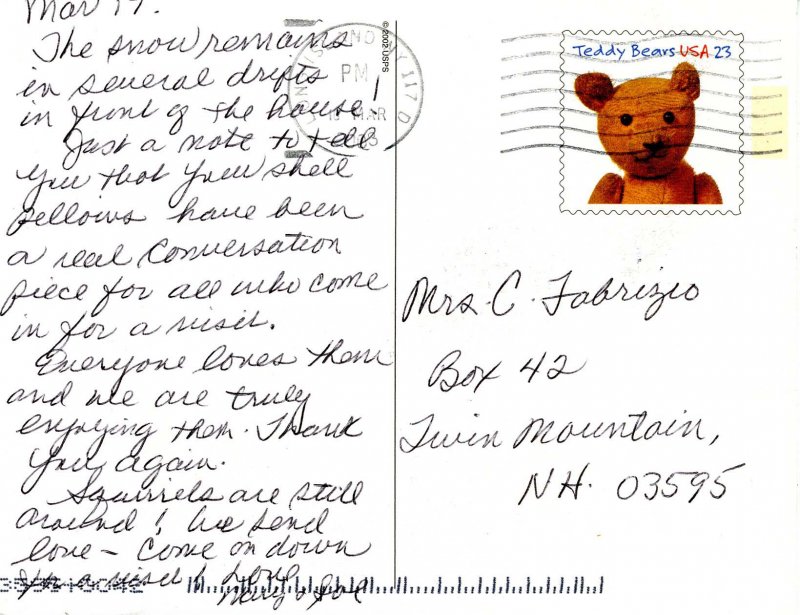 Mar 17.
The snow remains
in several drifts
in front of the house!
Just a note to tell
you that your shell
pillows have been
a real conversation
piece for all who come
in for a visit.
Everyone loves them
and we are truly
enjoying them. Thank
you again.
Squirrels are still
around! We send
love – come on down
for a visit! Love
Mary & Joe
© 2002 USPS
NY 117
PM
MAR
Teddy Bears USA 23
Mrs. C. Fabrizio
Box 42
Twin Mountain,
NH. 03595